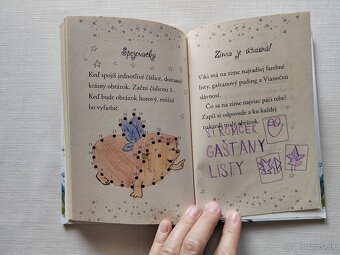 Spojovačka
Keď spojíš jednotlivé číslice, dostaneš
krásny obrázok. Začni číslicou 1.
Keď bude obrázok hotový, môžeš
ho vyfarbiť.
Zima je úžasná!
Viki má na zime najradšej farebné
listy, gaštanový puding a Vianočnú
dávnosť.
Čo sa na zime najviac páči tebe?
Zapíš si odpovede a ku každej
nakresli malý obrázok.
STROMČEK
GAŠTANY
LISTY